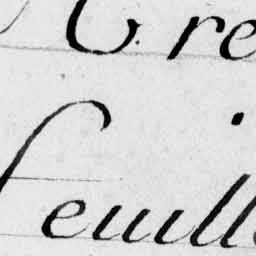 re
feuill